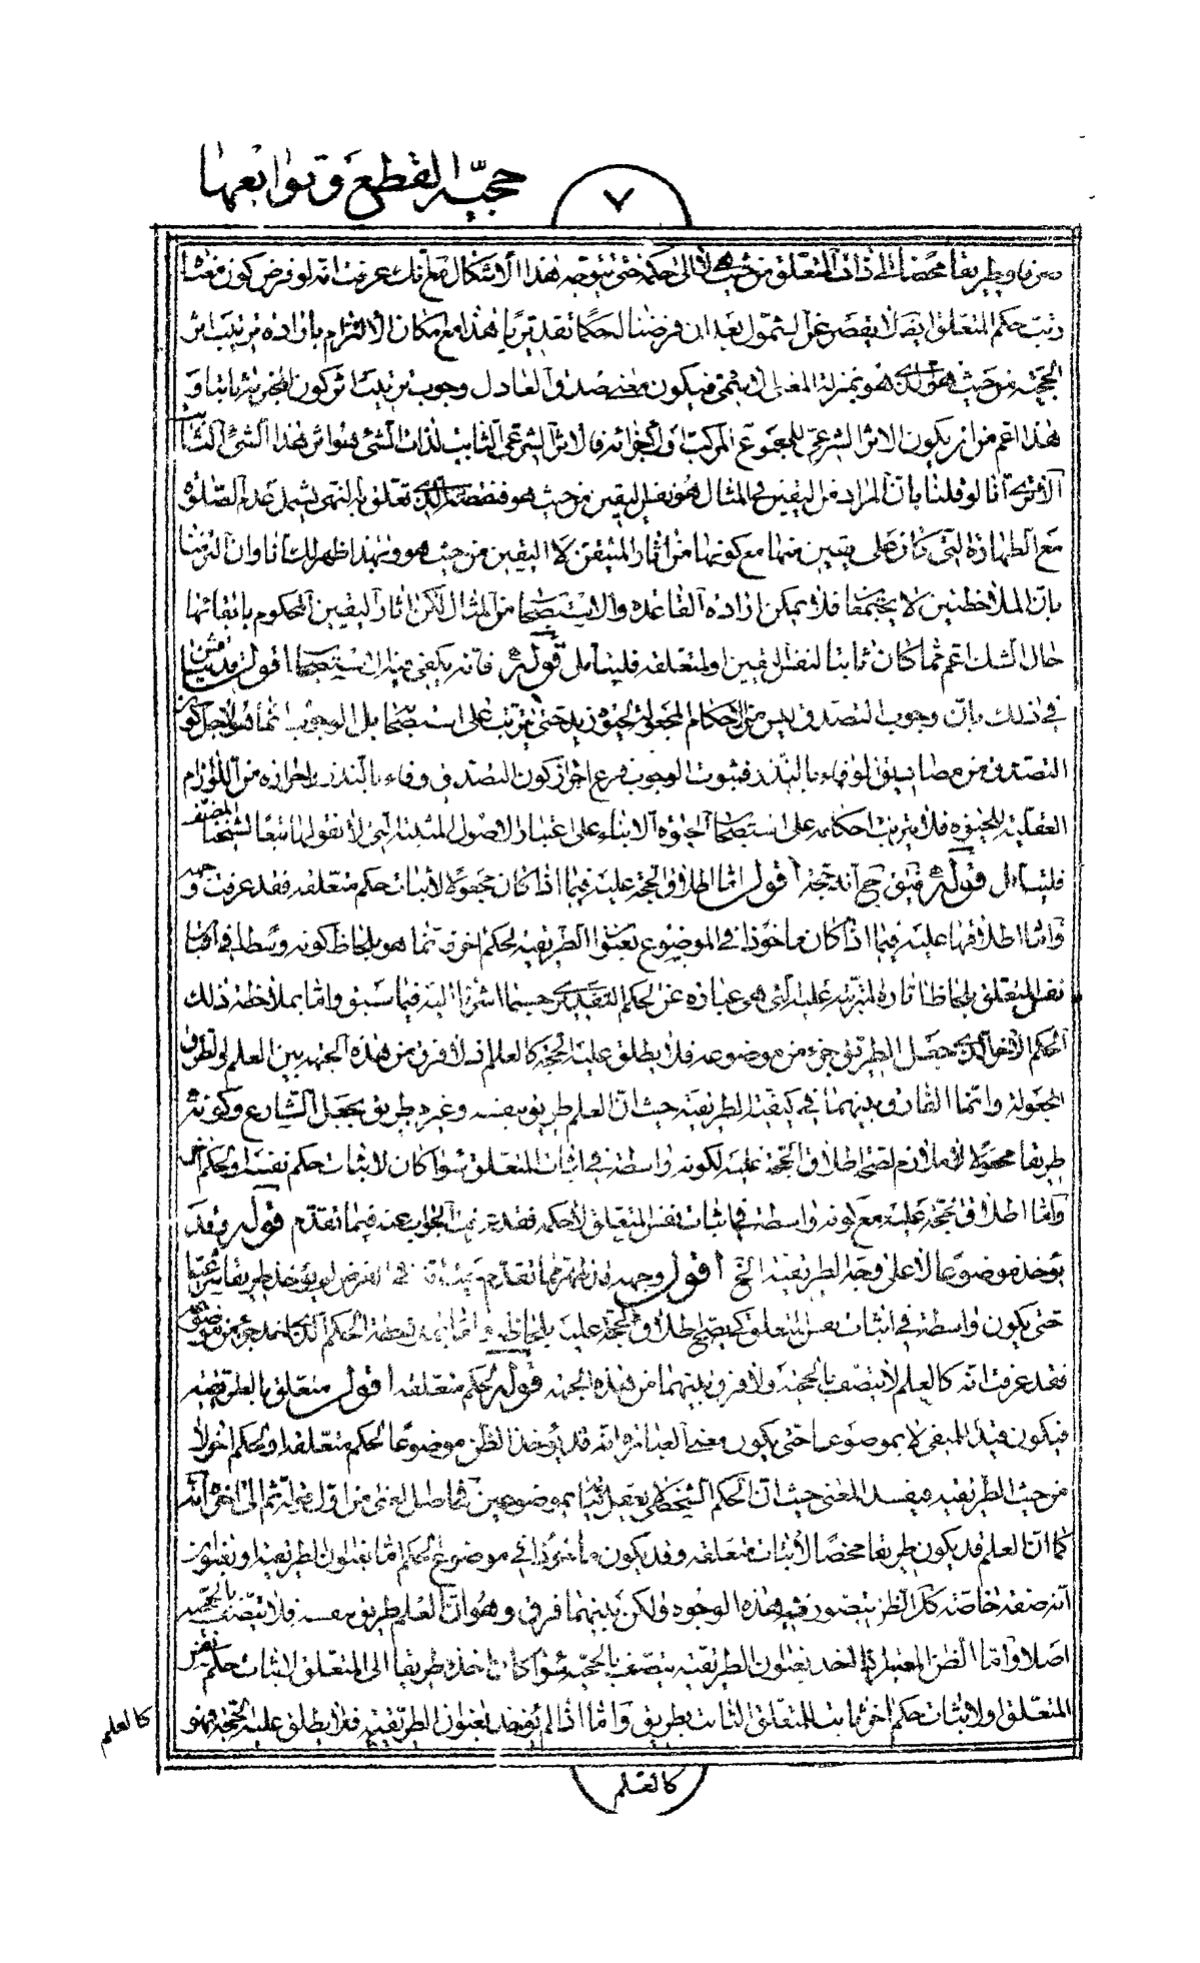 حجيّة القطع وتوابعها
٧
طريقا محضا الى ذات المتعلق من حيث هى لا الى حكمه حتى يتوجه هذا الاشكال مع انك عرفت انه لو فرض كون معنى
رتب حكم المتعلق ايضا لا يقصر عن الشمول بعد ان فرضنا لحكما تقديريا هذا مع امكان الالتزام بارادة ترتيب اثر
من حيث هو هو بمنزلة المعنى الاسمى فيكون معنى صدق العادل وجوب ترتيب اثر كون المخبر به ثابتا و
هذا اعم من ان يكون الاثر الشرعى للمجموع المركب او لاجزائه فالاثر الشرعى الثابت لذات الشئ هو اثر هذا الشئ
الا ترى انا لو قلنا بان المراد من اليقين فى المثال هو نفس اليقين من حيث هو فقضية تعلق بالنهى يشمل عدم الصلوة
مع الطهارة التى كان على يقين منها مع كونها من اثار المتيقن لا اليقين من حيث هو وبهذا ظهر لك انا وان التزمنا
بان الملاحظتين لا يجتمعا فلا يمكن ارادة القاعدة والاستصحاب من المثال لكن اثار اليقين المحكوم بابقائها
حال الشك اعم مما كان ثابتا لنفس اليقين او لمتعلقه فليتأمل قوله فانه يكفى فيه الاستصحاب اقول قد يناقش
فى ذلك بان وجوب التصدق ليس من الاحكام المجعولة لحيوة زيد حتى يترتب على استصحابها بل الوجوب انما هو لاجل كون
التصدق من مصاديق الوفاء بالنذر فثبوت الوجوب فرع احراز كون التصدق وفاء بالنذر واحرازه من اللوازم
العقلية للحيوة فلا يترتب احكامه على استصحاب الحيوة الا بناء على اعتبار الاصول المثبتة التى لا نقول بها تبعا لشيخنا المصنف
فليتأمل قوله فيقال ح انه حجة اقول اما اطلاق الحجة عليه فيما اذا كان مجعولا لاثبات حكم متعلقه فقد عرفت وجهه
واما اطلاقها عليه فيما اذا كان ماخوذا فى الموضوع بعنوان الطريقية لحكم اخر فانما هو بلحاظ كونه وسطا فى اثبات
نفس المتعلق بلحاظ اثاره المترتبة عليه التى هى عبارة عن الحكم التقديرى حسبما اشرنا اليه فيما سبق واما بملاحظة ذلك
الحكم الاخر الذى جعل الطريق جزء من موضوعه فلا يطلق عليه الحجة كالعلم اذ لا فرق من هذه الجهة بين العلم والطرق
المجعولة وانما الفارق بينهما فى كيفية الطريقية حيث ان العلم طريق بنفسه وغيره طريق بجعل الشارع وكونه
طريقا مجعولا لاملازم لصحة اطلاق الحجة عليه لكونه واسطة فى اثبات المتعلق سواء كان لاثبات حكم نفسه او لحكم اخر
واما اطلاق الحجة عليه مع كونه واسطة فى اثبات نفس المتعلق لا حكمه فقد عرفت الجواب عنه فيما تقدم قوله وقد
يؤخذ موضوعا لا على وجه الطريقية الخ اقول وجهه قد ظهر مما تقدم فى الفرض لم يؤخذ طريقا شرعيا
حتى يكون واسطة فى اثبات نفس المتعلق كى يصح اطلاق الحجة عليه بلحاظه واما بملاحظة الحكم الذى اخذ جزء من موضوعه
فقد عرفت انه كالعلم لا يتصف بالحجية ولا فرق بينهما من هذه الجهة قوله لحكم متعلقه اقول متعلق بالطريقية
فيكون قيدا للمبقى لا بموضوعا حتى يكون معنى العبارة انه قد يؤخذ الظن موضوعا لحكم متعلقه او لحكم اخر لا
من حيث الطريقية فيفسد المعنى حيث ان الحكم الشخصى لا يعقل بموضوعين فحاصل المعنى من اوله الى اخره انه
كما ان العلم قد يكون طريقا محضا لاثبات متعلقه وقد يكون ماخوذا فى موضوع الحكم اما بعنوان الطريقية او بعنوان
انه صفة خاصة كك الظن يتصور فيه هذه الوجوه ولكن بينهما فرق وهو ان العلم طريق بنفسه فلا يتصف بالحجية
اصلا واما الظن المعتبر اذا اخذ بعنوان الطريقية يتصف بالحجية سواء كان اخذه طريقا الى المتعلق لاثبات حكم نفس
المتعلق او لاثبات حكم اخر ثابت للمتعلق الثابت بطريق واما اذا لم يؤخذ بعنوان الطريقية فلا يطلق عليه الحجة فهو
كالعلم
كالعلم